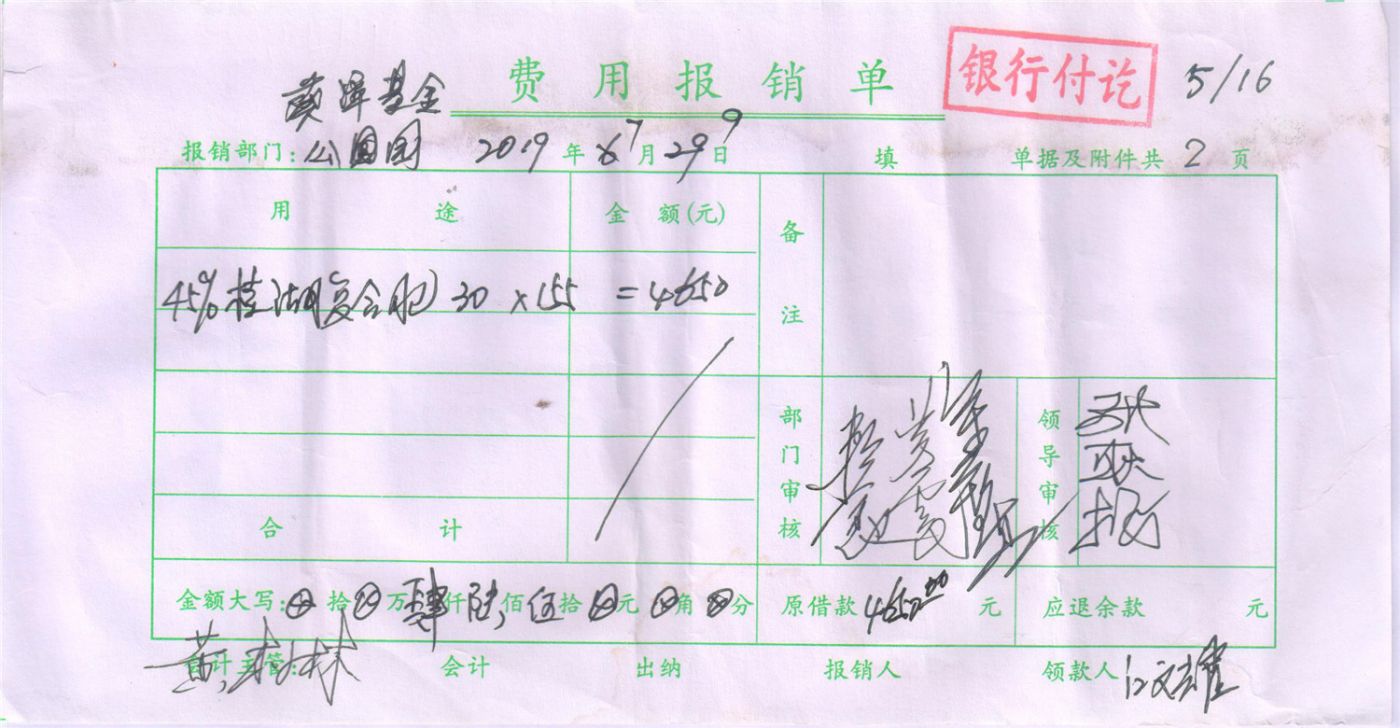 费用报销单
银行付讫
5/16
基金
报销部门: 公园园 2019年 6 7月 29 9日 填 单据及附件共 2 页
用途 金额(元) 备注
45%桂湖复合肥 30 ×155 =4650
合计 部门审核 领导审核
金额大写: ⊗拾⊗万肆仟陆佰伍拾⊗元⊗角⊗分 原借款 4650.00 元 应退余款 元
会计主管: 会计 出纳 报销人 领款人